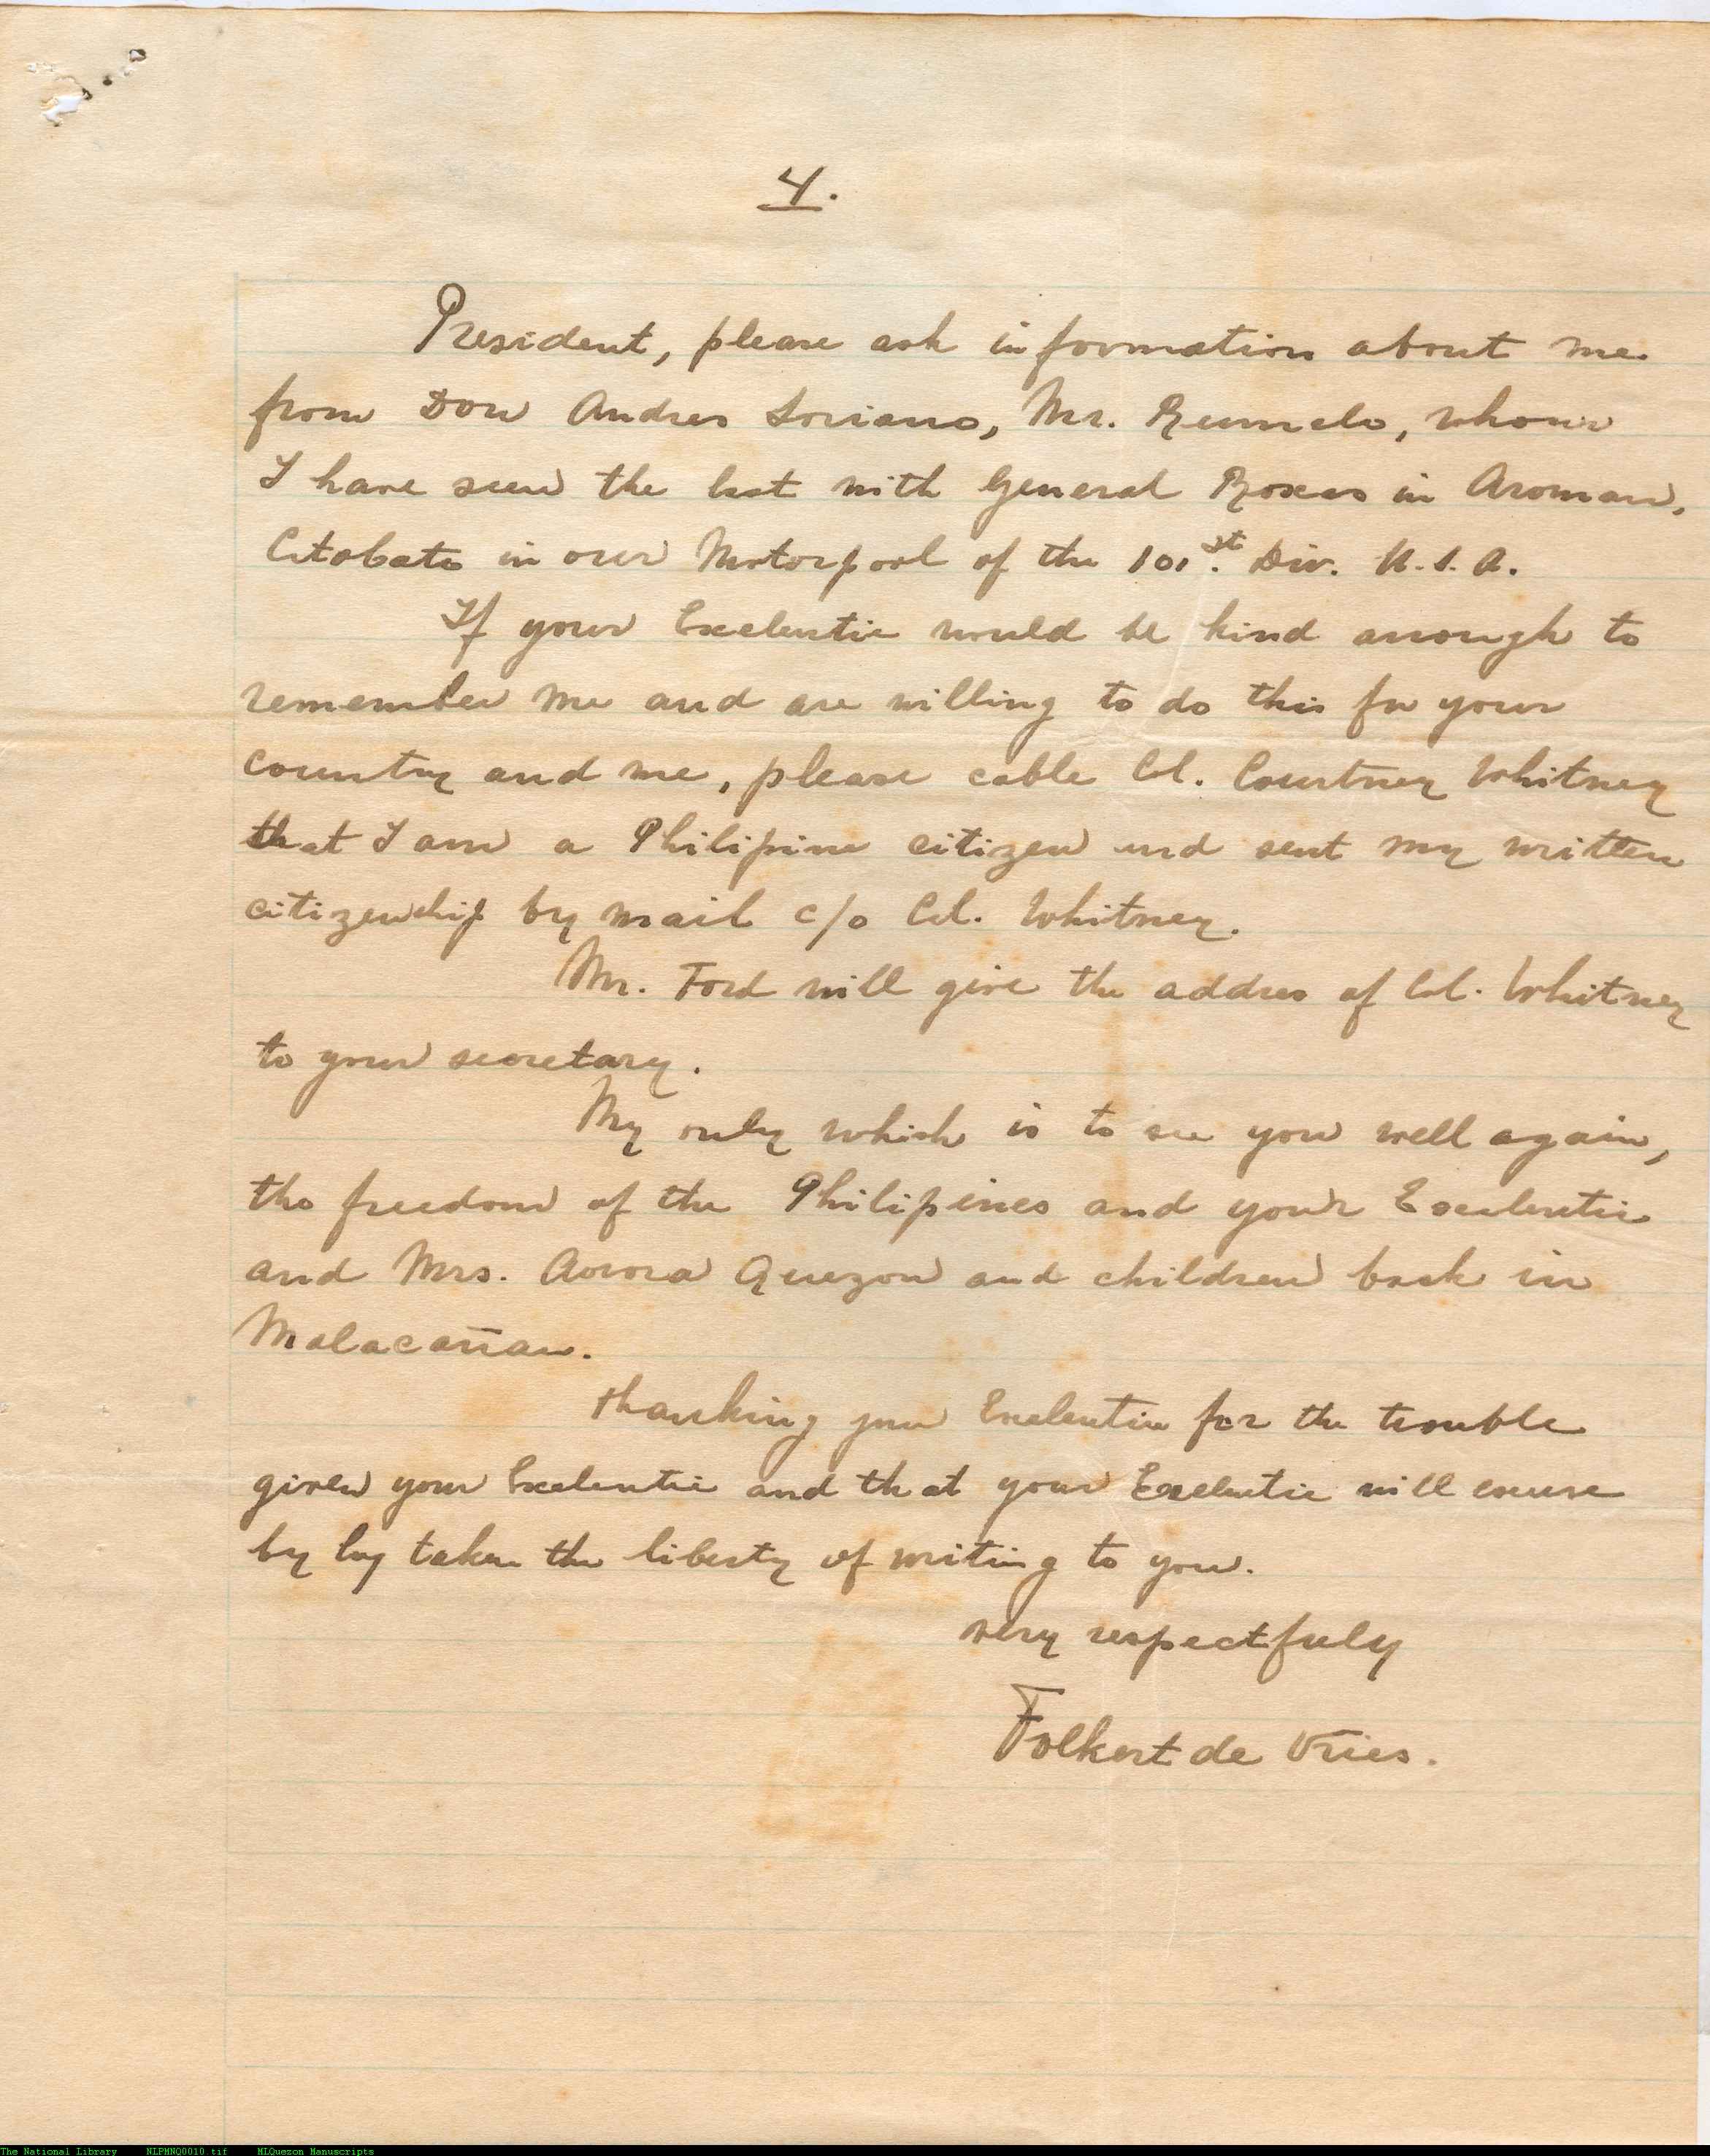 4.
President, please ask information about me
from Don Andres Soriano, Mr. Rumelo, whom
I have seen the last with General Roxas in Aroman,
Cotobato in our Motorpool of the 101st. Div. U.S.A.
If your Exelentie would be kind anough to
remember me and are willing to do this for your
country and me, please cable Col. Courtney Whitney
that I am a Philipine citizen and sent my written
citizenship by mail c/o Col. Whitney.
Mr. Ford will give the addres of Col. Whitney
to your secretary.
My only which is to see you well again,
the freedom of the Philipines and your Exelentie
and Mrs. Aurora Quezon and children back in
Malacañan.
Thanking your Exelentie for the trouble
given your Exelentie and that your Exelentie will excuse
by taken the liberty of writing to you.
very respectfuly
Folkert de Vries.
The National Library NLPMNQ0010.tif MLQuezon Manuscripts